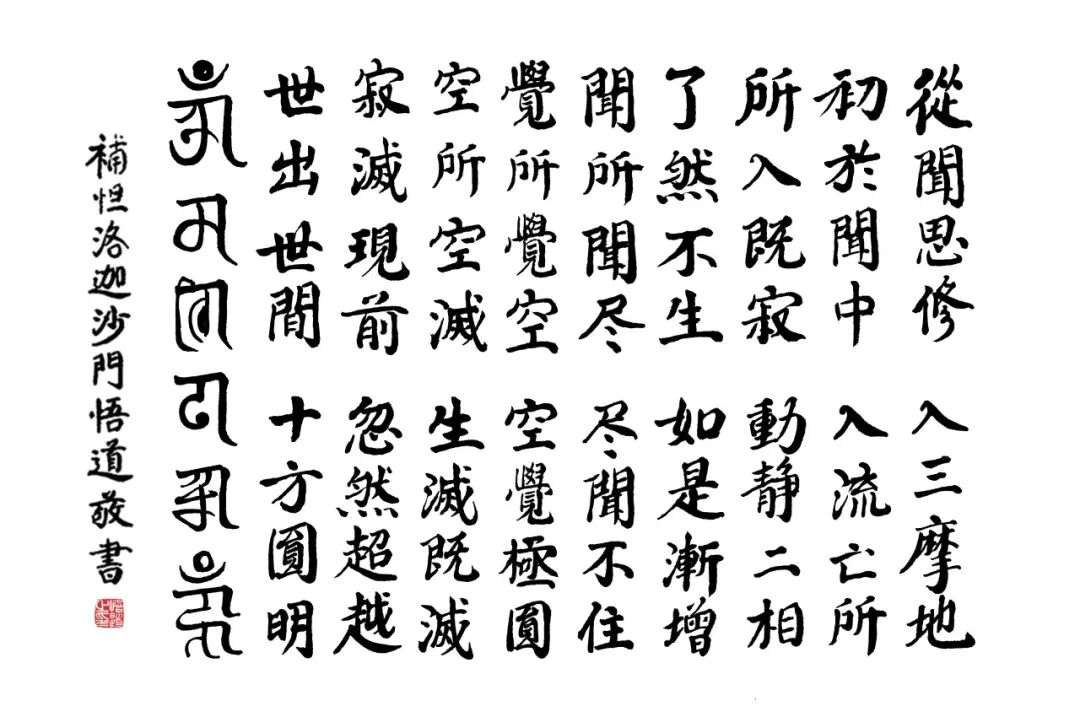 從聞思修 入三摩地
初於聞中 入流亡所
所入既寂 動静二相
了然不生 如是漸增
聞所聞尽 尽聞不住
覺所覺空 空覺極圓
空所空滅 生滅既滅
寂滅現前 忽然超越
世出世間 十方圓明
ॐ म णि प द्मे हूँ
補怛洛迦沙門悟道敬書